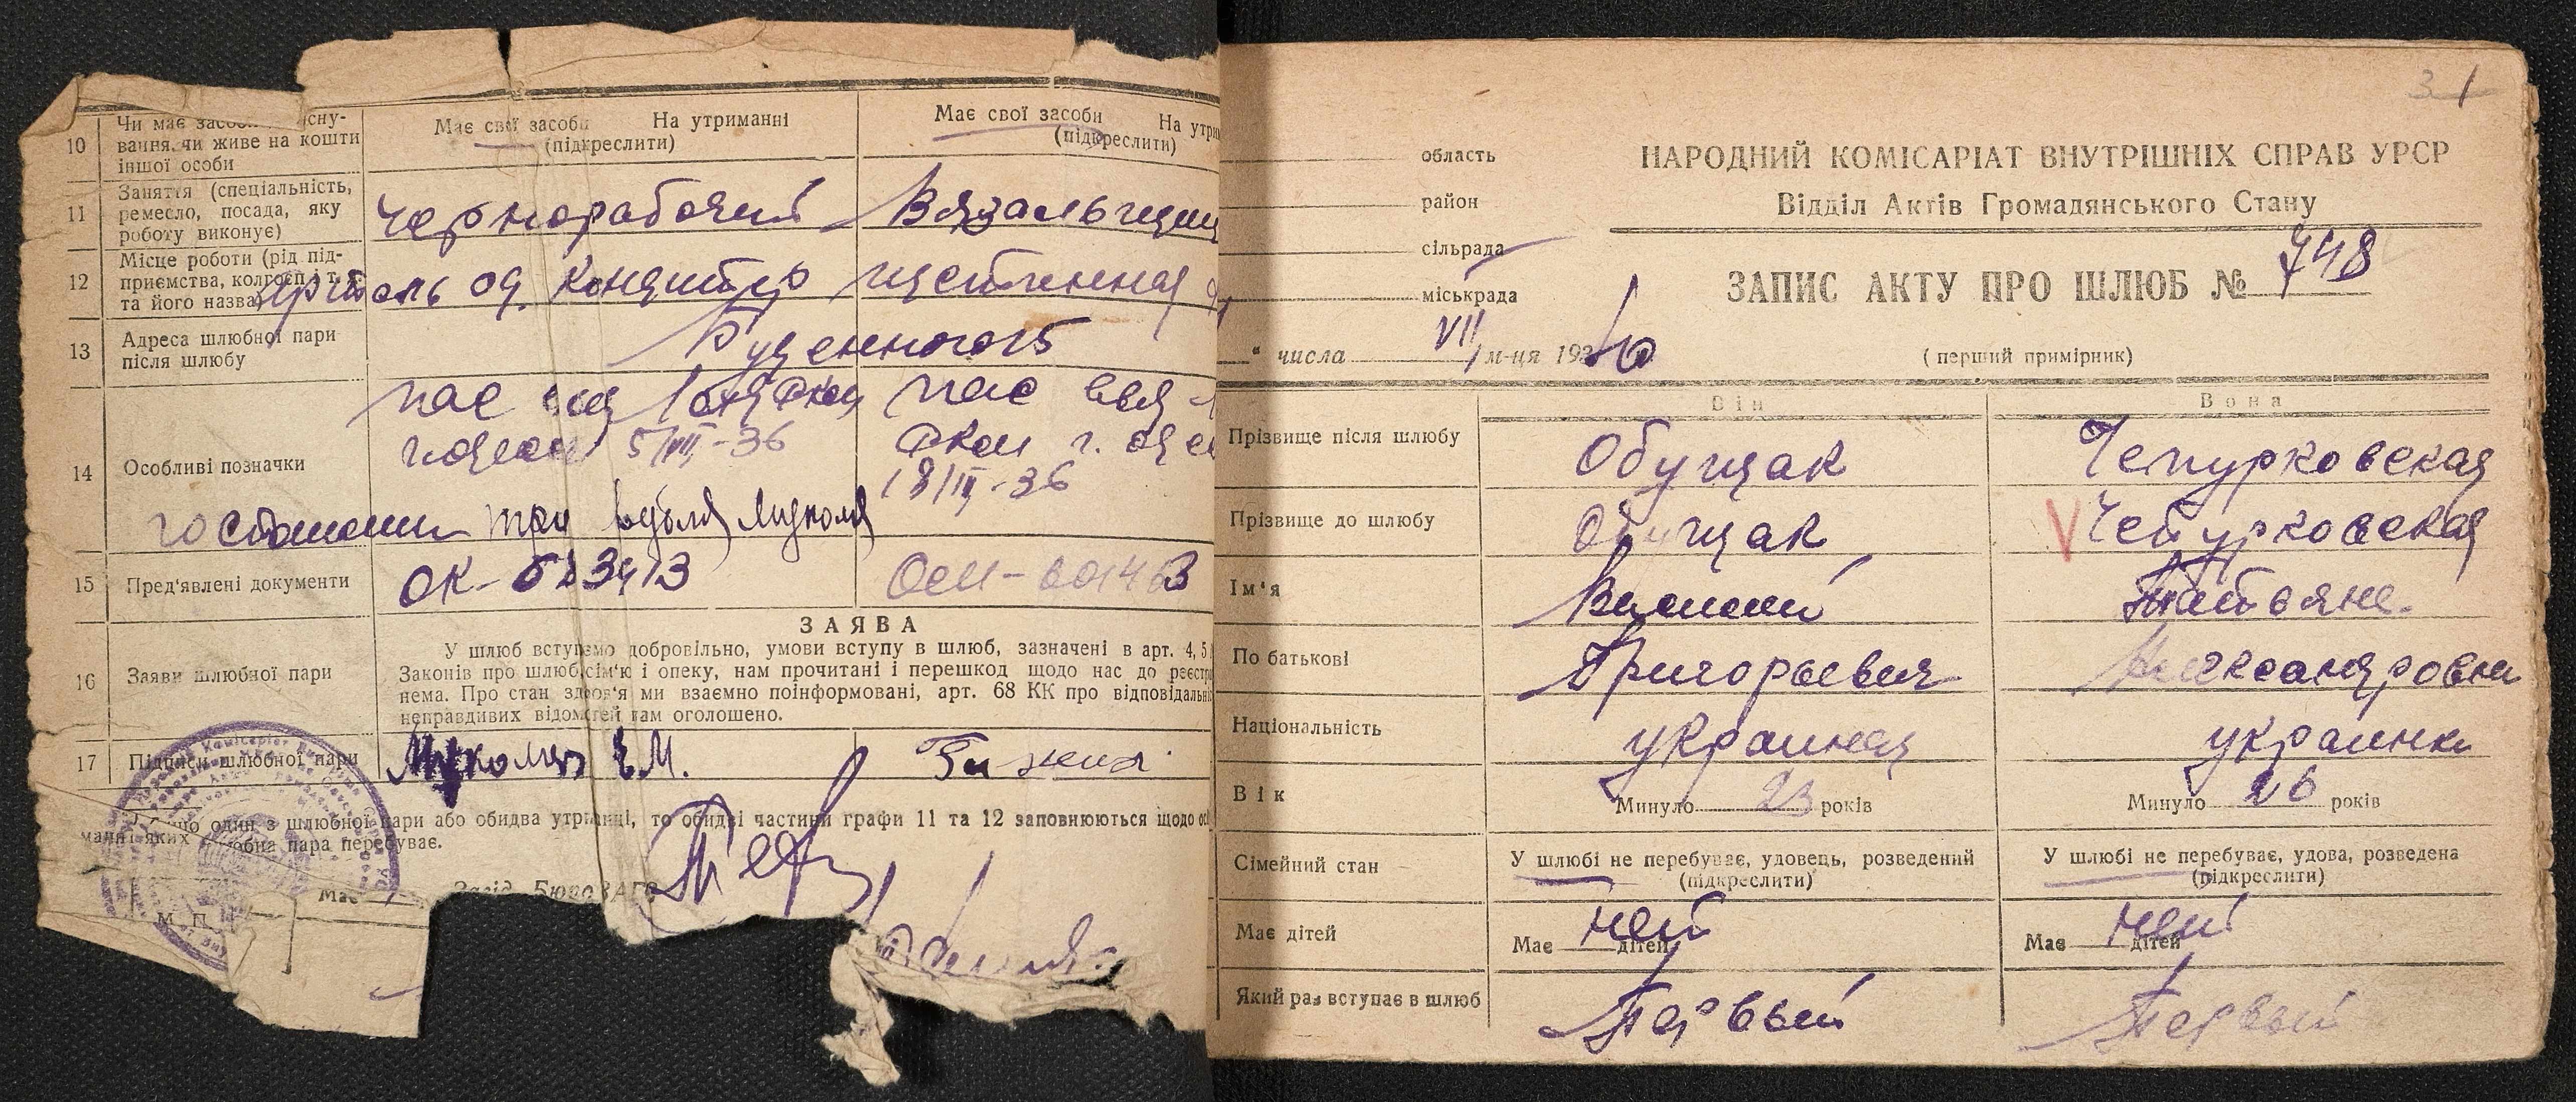 10 Чи має засоби існу-
вання, чи живе на кошти
іншої особи
Має свої засоби На утриманні
(підкреслити)
Має свої засоби На утрим
(підкреслити)
11 Заняття (спеціальність,
ремесло, посада, яку
роботу виконує)
Чернорабочий
Вязальщиц
12 Місце роботи (рід під-
приємства, колгосп і т.
та його назва)
Артель од. Кондитер
щетинная ф
13 Адреса шлюбної пари
після шлюбу
Буденного 15
14 Особливі позначки
пас
5/VII-36
пас
г.
18/III-36
госпошлин три рубля
15 Пред'явлені документи
ОК-
16 Заяви шлюбної пари
ЗАЯВА
У шлюб вступаємо добровільно, умови вступу в шлюб, зазначені в арт. 4, 5
Законів про шлюб, сім'ю і опеку, нам прочитані і перешкод щодо нас до реєстр
нема. Про стан здоров'я ми взаємно поінформовані, арт. 68 КК про відповідальн
неправдивих відомостей нам оголошено.
17 Підписи шлюбної пари
один з шлюбної пари або обидва утриманці, то обидві частини графи 11 та 12 заповнюються щодо ос
яких шлюбна пара перебуває.
Завід. Бюро ЗАГС
М. П.
31
область
район
сільрада
міськрада
" числа VII м-ця 1940
НАРОДНИЙ КОМІСАРІАТ ВНУТРІШНІХ СПРАВ УРСР
Відділ Актів Громадянського Стану
ЗАПИС АКТУ ПРО ШЛЮБ № 748
(перший примірник)
Він Вона
Прізвище після шлюбу Обущак Чепурковская
Прізвище до шлюбу Обущак V Чепурковская
Ім'я Василий Татьяна
По батькові Григорьевич Александровна
Національність украинец украинка
Вік Минуло 23 років Минуло 26 років
Сімейний стан У шлюбі не перебуває, удовець, розведений
(підкреслити)
У шлюбі не перебуває, удова, розведена
(підкреслити)
Має дітей Має нет дітей Має нет дітей
Який раз вступає в шлюб Первый Первый